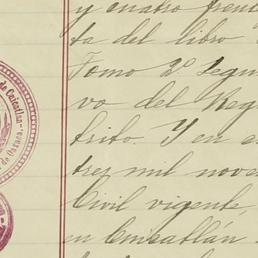 y cuatro frent
ta del libro
Tomo 2º segu
vo del Reg
trito. Y en e
tres mil nove
Civil vigente,
en Cuicatlán
de Cuicatlan
de Oaxaca